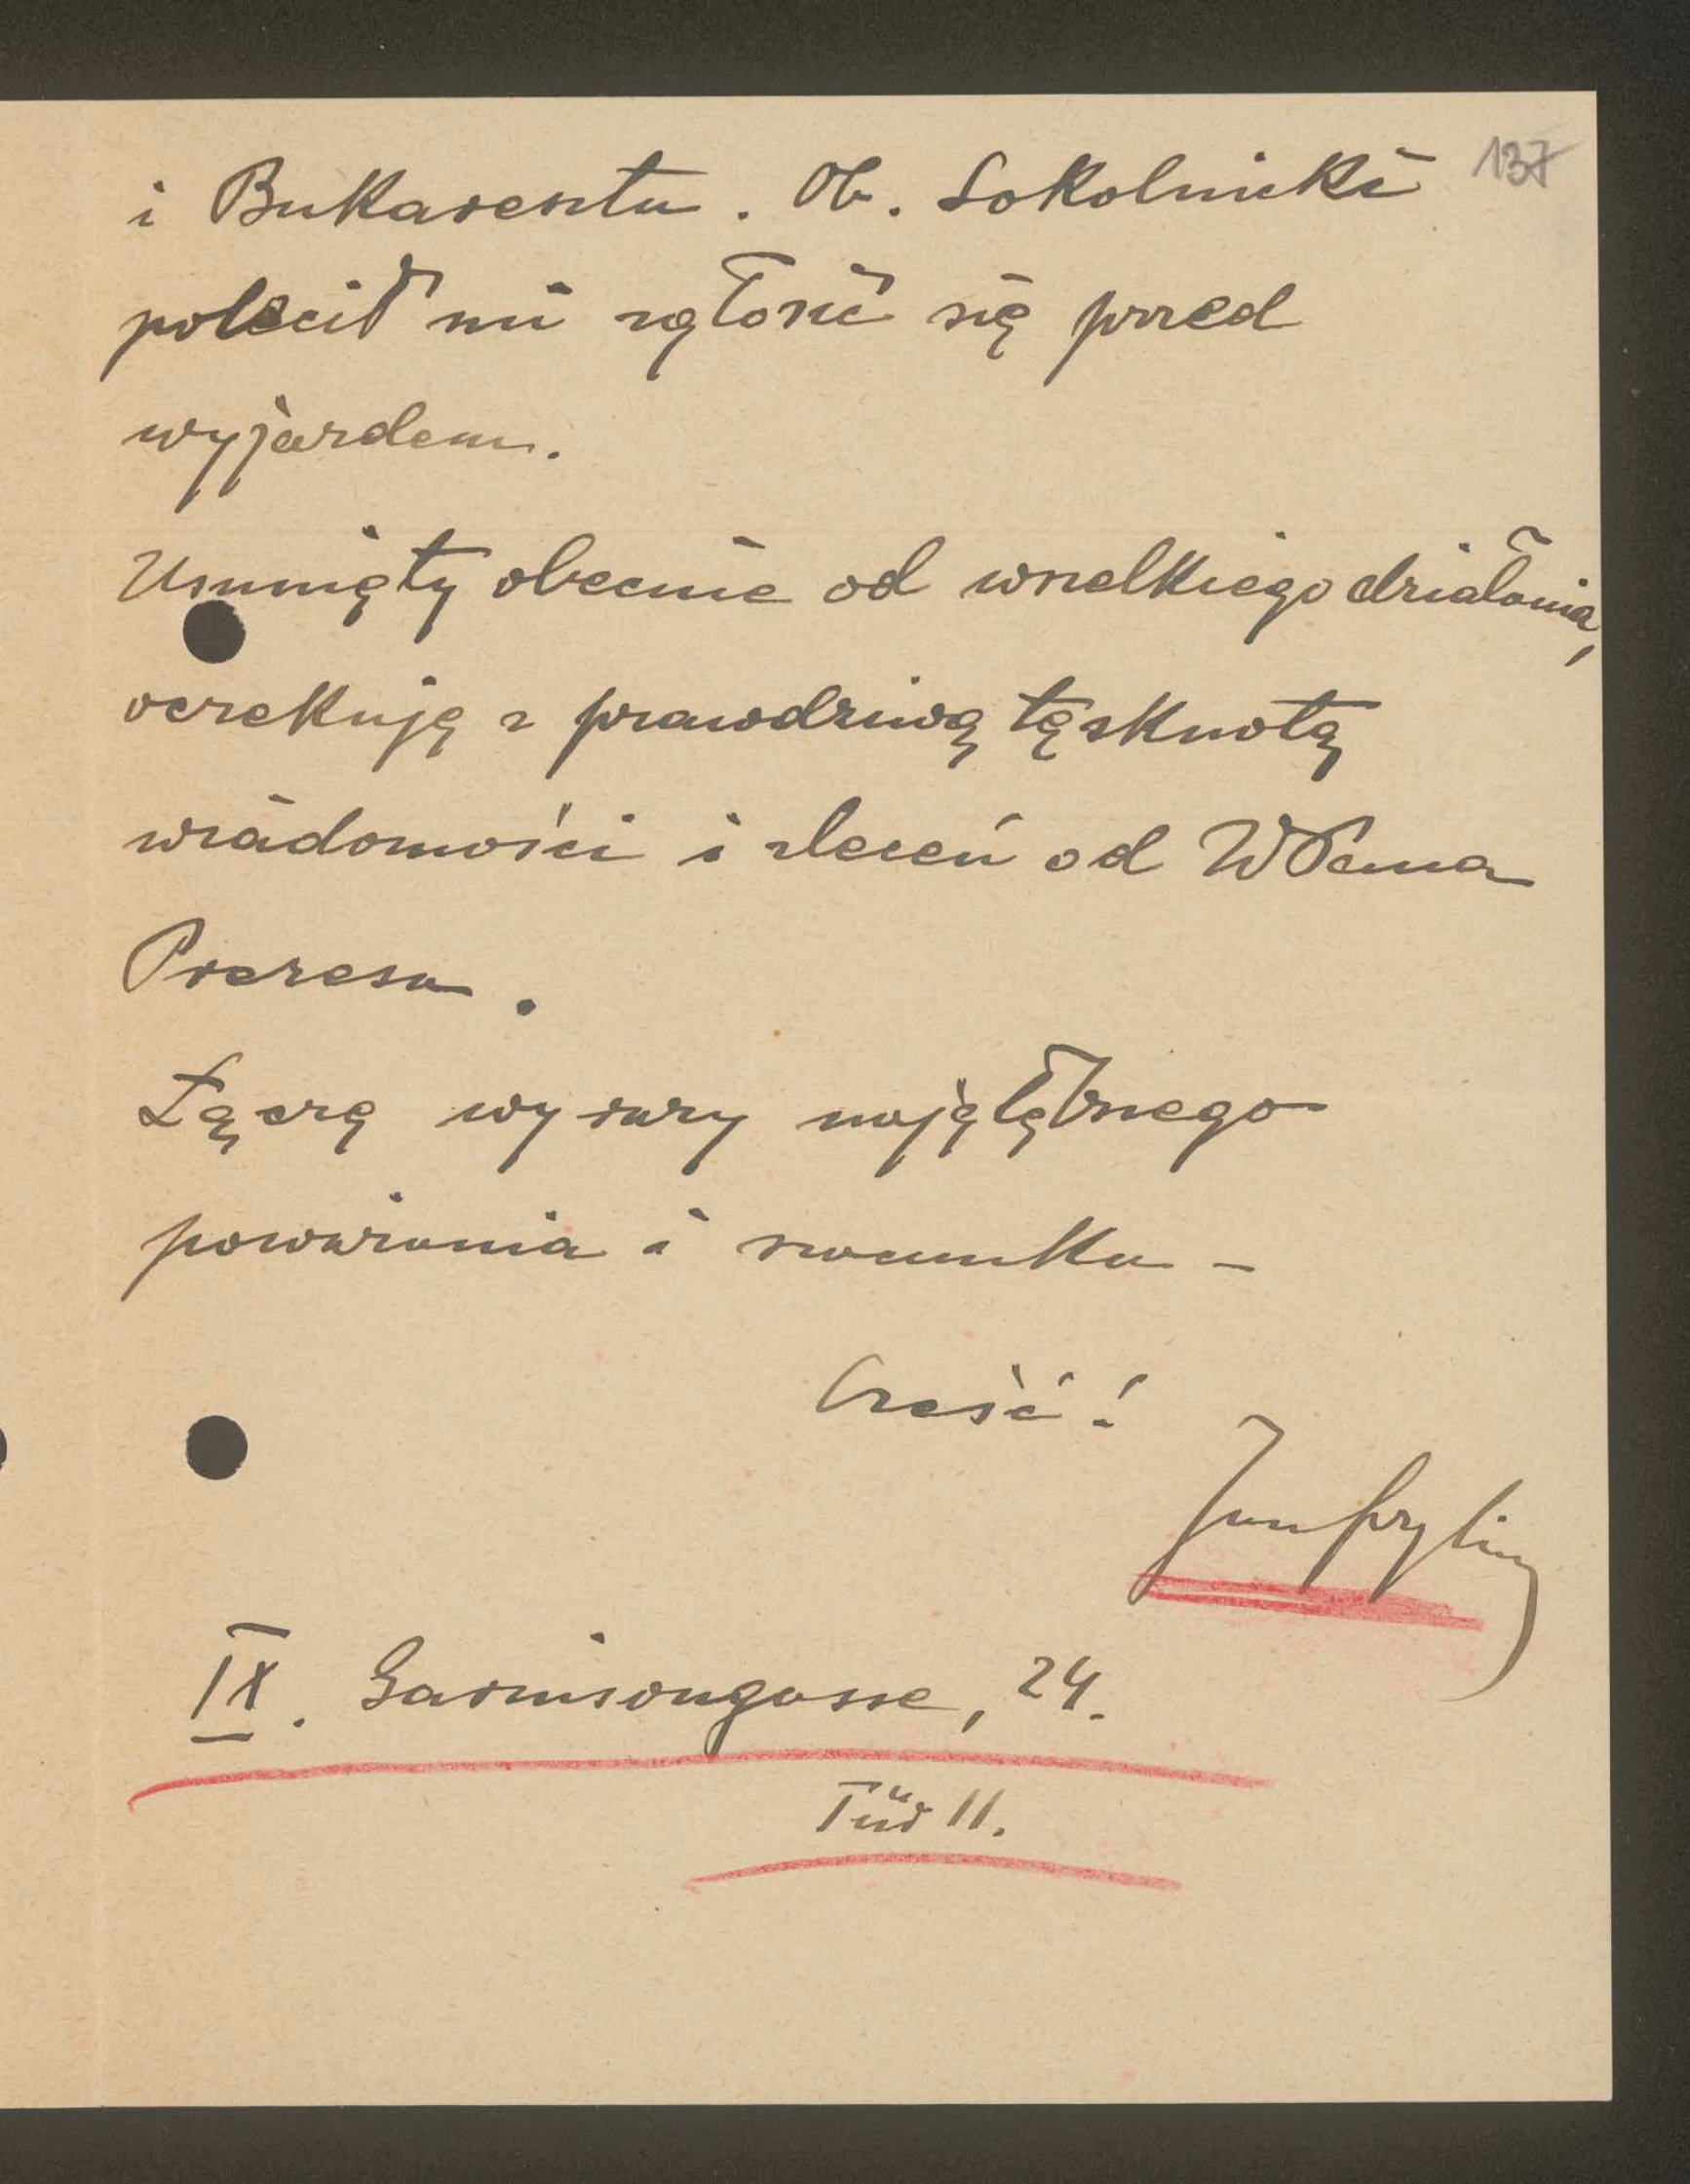 137
i Bukaresztu. Ob. Sokolnicki
polecił mi zgłosić się przed
wyjazdem.
Usunięty obecnie od wszelkiego działania,
oczekuję z prawdziwą tęsknotą
wiadomości i zleceń od WPana
Prezesa.
Łączę wyrazy najgłębszego
poważania i szacunku –
Cześć!
Jan
IX. Garnisongasse, 24.
Tür 11.